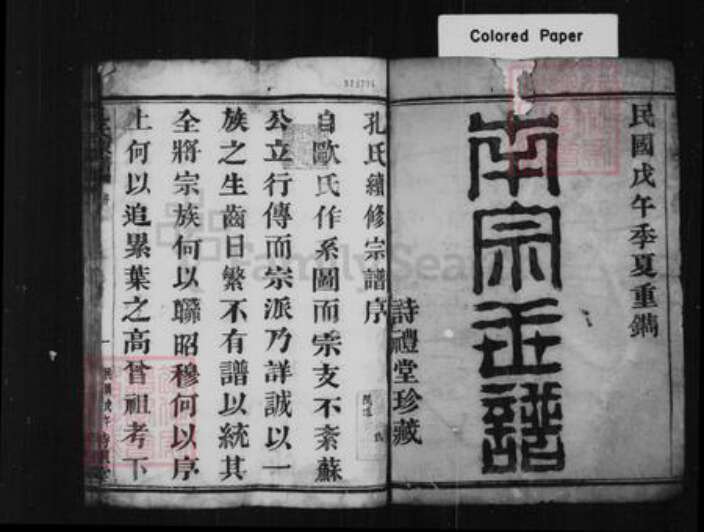 Colored Paper
民國戊午季夏重鐫
南宗正譜
詩禮堂珍藏
孔氏續修宗譜序
自歐氏作系圖而宗支不紊蘇
公立行傳而宗派乃詳誠以一
族之生齒日繁不有譜以統其
全將宗族何以聯昭穆何以序
上何以追累葉之高曾祖考下
一
民國戊午
FamilySearch